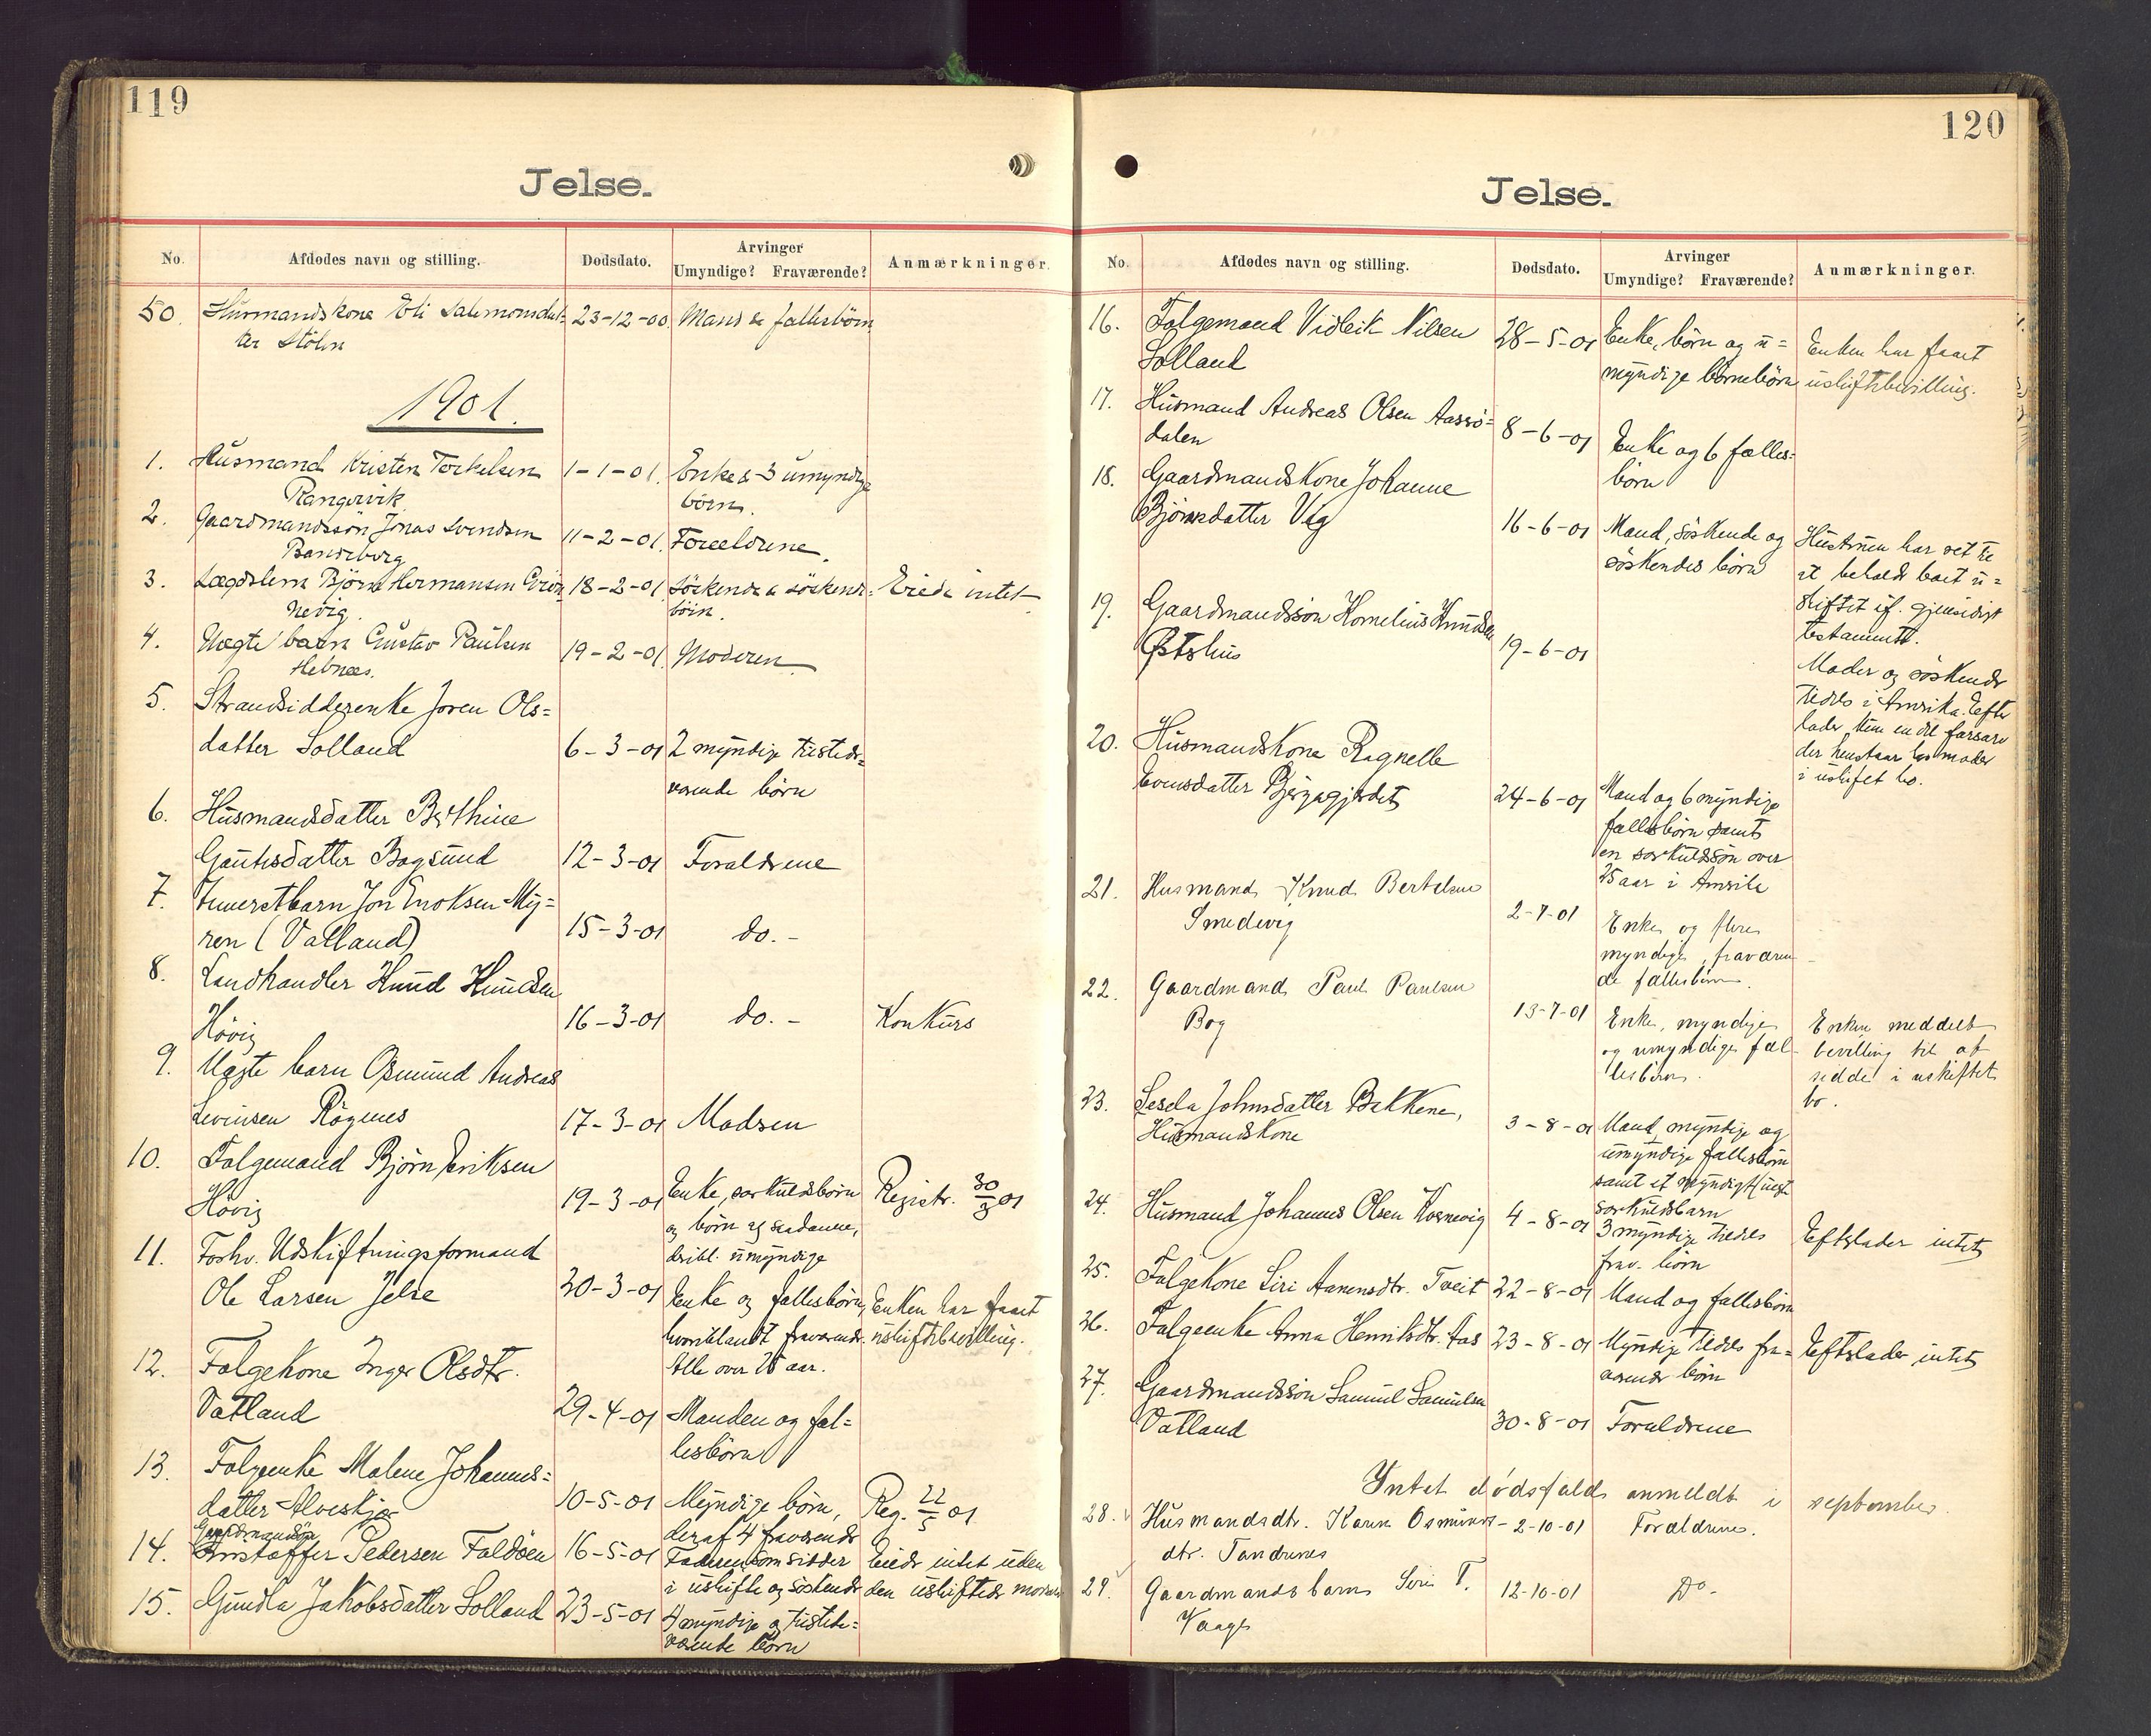 119
Jelse.
No. Afdødes navn og stilling. Dødsdato. Arvinger Umyndige? Fraværende? Anmærkninger.
50. Husmandskone Eli Salemonsdat- 23-12-00. Mand & fællesbörn
ter Stölen
1901.
1. Husmand Kristen Torkelsen 1-1-01. Enke & 3 umyndige
Rangervik börn.
2. Gaardmandssön Jonas Svendsen 11-2-01. Foreldrene
Bandeberg
3. Lægdslem Björn Hermansen 18-2-01 Söskende & söskende- Eiede intet
Nevig. börn.
4. Uægte barn Gustav Paulsen 19-2-01 Moderen
Hebnes.
5. Strandsidderenke Joren Ols=
datter Solland 6-3-01 2 myndige tilsteds=
værende börn
6. Husmandsdatter Berthine
Gautesdatter Bogsund 12-3-01 Foraldrene
7. Innerstbarn Jon Enoksen My=
ren (Vatland) 15-3-01 do.-
8. Landhandler Knud Knudsen
Hövig 16-3-01 do.- Konkurs
9. Uægte barn Osmund Andreas
Levinsen Rögenes 17-3-01 Modren
10. Folgemand Björn Eriksen
Hövig 19-3-01 Enke, særkuldsbörn Registr. 30/3 01
og börn af saadanne,
deribl. umyndige
11. Forhv. Udskiftningsformand
Ole Larsen Jelse 20-3-01 Enke og fællesbörn, Enken har faaet
hvoriblandt fraværende. uskiftebevilling.
Alle over 25 aar.
12. Folgekone Inger Olsdtr.
Vatland 29-4-01 Manden og fæl=
lesbörn
13. Folgeenke Malene Johannes=
datter Alveskjer 10-5-01 Myndige börn, Reg. 22/5 01
deraf 4 fraværende
Gaardmandsön
14. Kristoffer Pedersen Foldöen 16-5-01 Faderen som sidder Eiede intet uden
i uskifte og söskende den uskiftede
15. Gundla Jakobsdatter Solland 23-5-01 4 myndige og tilstede=
værende börn
120
Jelse.
No. Afdødes navn og stilling. Dødsdato. Arvinger Umyndige? Fraværende? Anmærkninger.
16. Folgemand Vidleik Nilsen 28-5-01 Enke, börn og u= Enken har faaet
Solland myndige börnebörn uskiftebevilling.
17. Husmand Andreas Olsen Aassö=
dalen 8-6-01 Enke og 6 fælles-
börn
18. Gaardmandskone Johanne
Björnsdatter Våg 16-6-01 Mand, söskende og Hustruen har ret til
söskendes börn at beholde boet u=
skiftet if. gjensidigt
testamente.
19. Gaardmandssön Kornelius Knudsen
Østshus 19-6-01
Moder og söskende
tildels i Amerika. Efter
lader kun en del farsarv
der henstaar hos moder
i uskiftet bo.
20. Husmandskone Ragnelle
Evensdatter Bjergagjerdet 24-6-01 Mand og 6 myndige
fællesbörn samt
en særkuldssön over
25 aar i Amerika
21. Husmand Knud Bertelsen
Smedevig 2-7-01 Enke og flere
myndige, fraværen-
de fællesbörn.
22. Gaardmand Paul Paulsen
Bog 13-7-01 Enke, myndige Enken meddelt
og umyndige fæl- bevilling til at
lesbörn. sidde i uskiftet
bo.
23. Sesela Johnsdatter Bakkene, 3-8-01 Mand, myndige og
Husmandskone umyndige fællesbörn
samt et myndigt
særkuldsbarn
24. Husmand Johannes Olsen Kornevig 4-8-01 3 myndige tildels Efterlader intet
frav. börn
25. Folgekone Siri Aanensdtr. Tveit 22-8-01 Mand og fællesbörn
26. Folgeenke Anna Henriksdtr. Aas 23-8-01 Myndige tildels fra= Efterlader intet
værende börn
27. Gaardmandssön Samuel Samuelsen
Vatland 30-8-01 Foraldrene
Intet dödsfald anmeldt i september.
28. Husmandsdtr. Karen Osmunds- 2-10-01 Foraldrene.
dtr. Tandrenes
29. Gaardmandsbarn Siri T. 12-10-01 Do-
Vaage